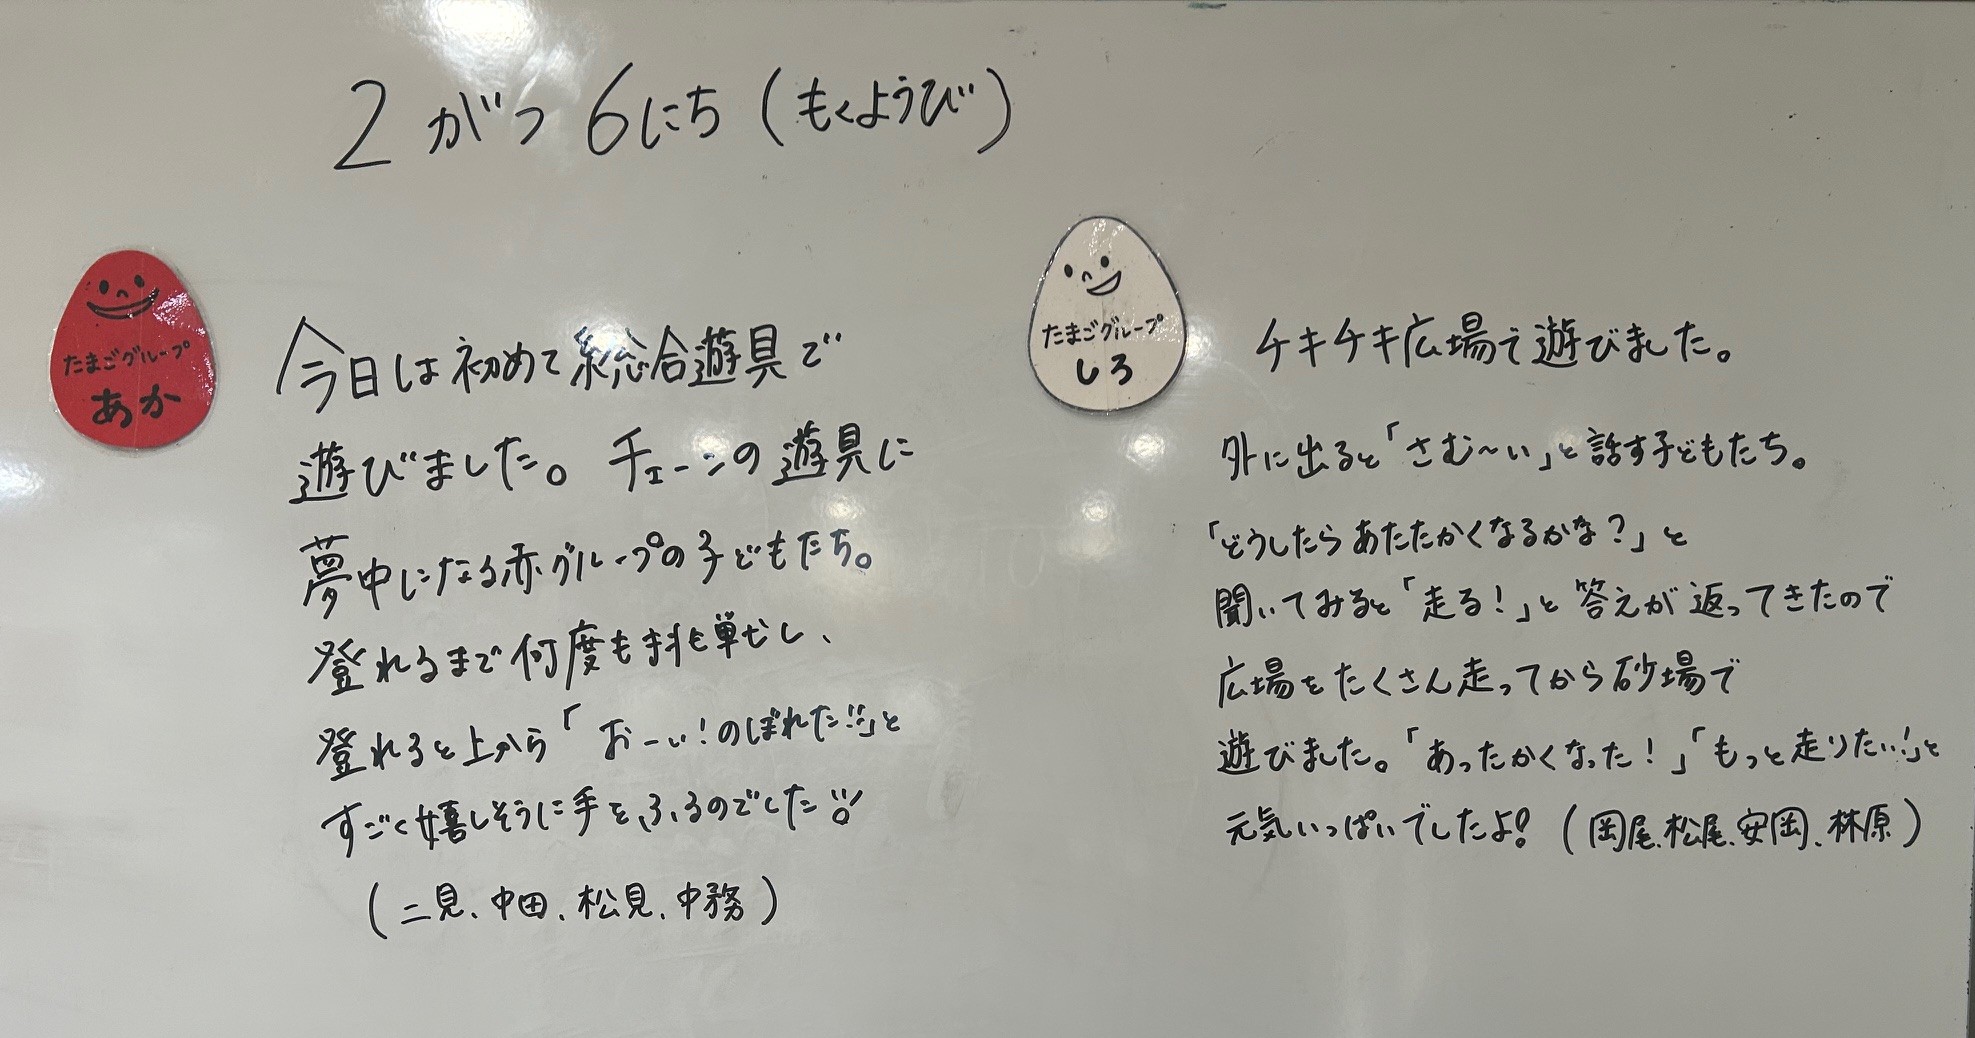 2がつ6にち(もくようび)
たまごグループ
あか
今日は初めて総合遊具で
遊びました。チェーンの遊具に
夢中になる赤グループの子どもたち。
登れるまで何度も挑戦し、
登れると上から「おーい!のぼれた!!」と
すごく嬉しそうに手をふるのでした
(二見、中田、松見、中務)
たまごグループ
しろ
チキチキ広場で遊びました。
外に出ると「さむ〜い」と話す子どもたち。
「どうしたらあたたかくなるかな?」と
聞いてみると「走る!」と答えが返ってきたので
広場をたくさん走ってから砂場で
遊びました。「あったかくなった!」「もっと走りたい!」と
元気いっぱいでしたよ!(岡尾、松尾、安岡、林原)